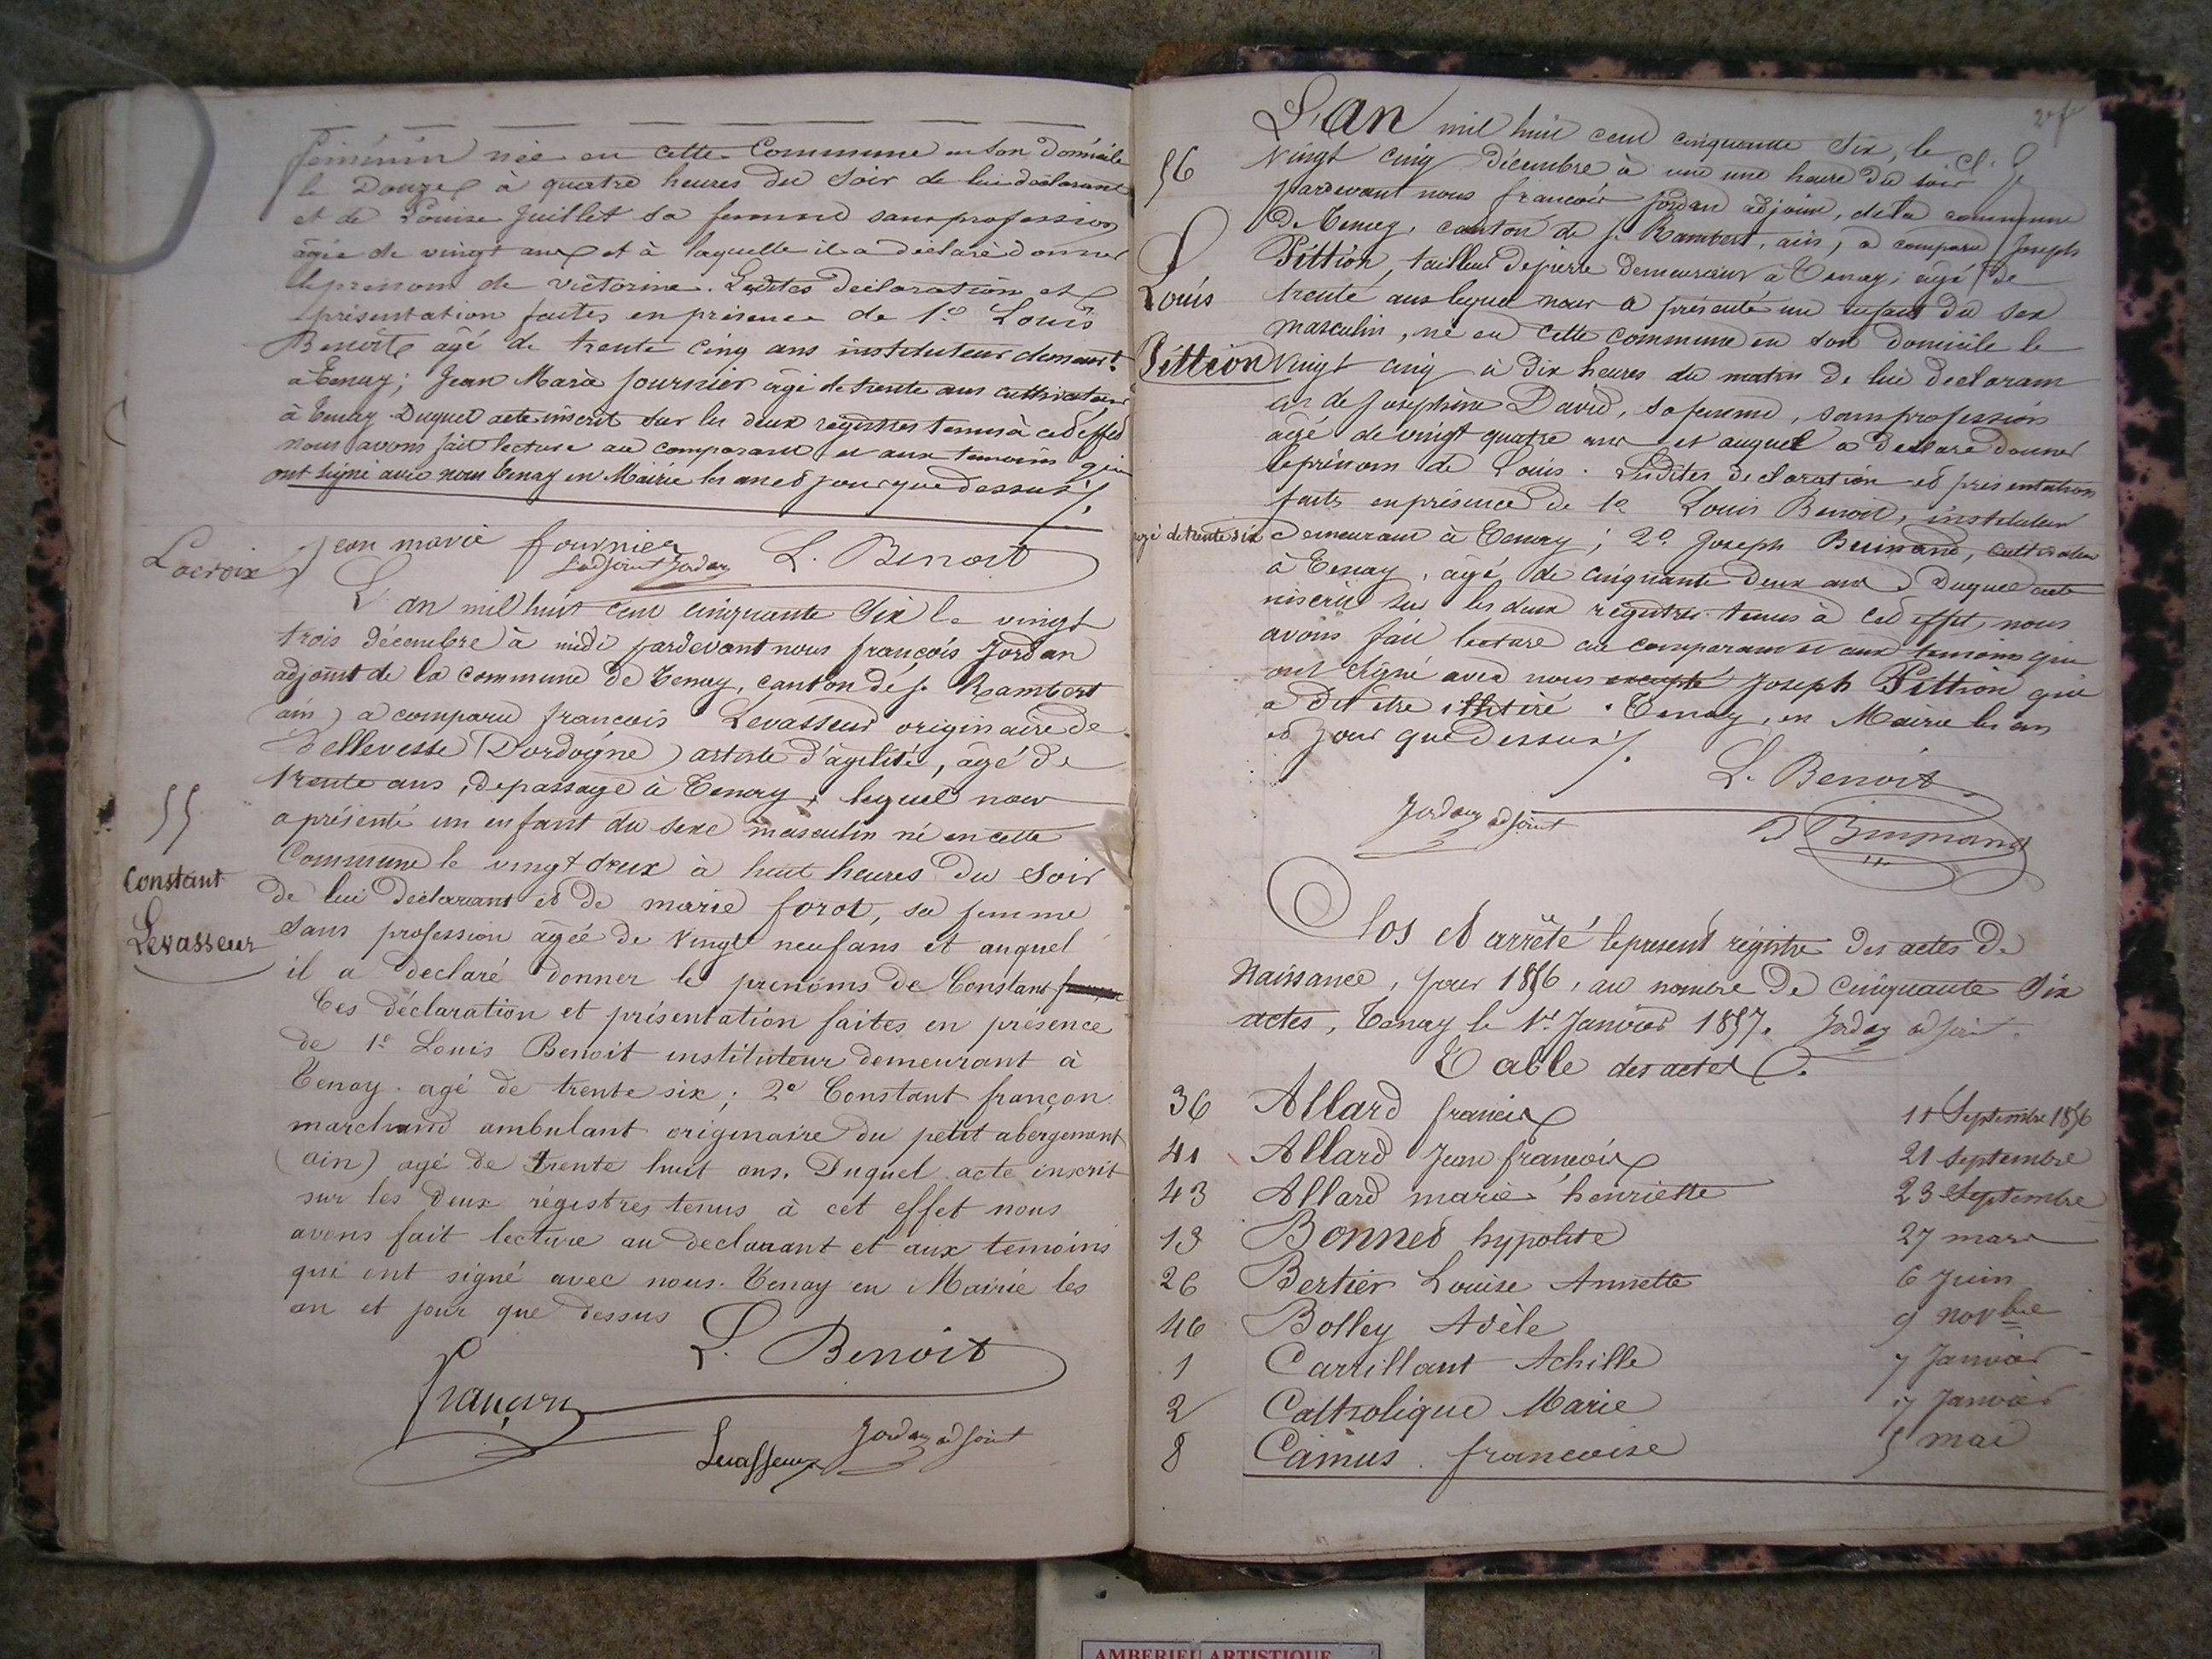 féminin née en cette Commune en son Domicile
le Douze à quatre heures du soir de lui déclarant
et de Louise Juillet sa femme sans profession
âgée de vingt ans et à laquelle il a déclaré donner
le prénom de victorine. Lesdites déclaration et
présentation faites en présence de 1º Louis
Benoit âgé de trente cinq ans instituteur demeurt
à Tenay; Jean Marie fournier âgé de trente ans cultivateur
à Tenay Duquel acte inscrit sur les deux registres tenus à cet effet
nous avons fait lecture au comparant et aux temoins qui
ont signé avec nous Tenay en Mairie les an et jour que dessus
Lacroix
jean marie fournier L. Benoit
L'adjoint Jordan
L'an mil huit cent cinquante six le vingt
trois décembre à midi pardevant nous françois Jordan
adjoint de la commune de Tenay, canton de st. Rambert
(ain) a comparu francois Levasseur originaire de
(Dordogne) artiste d'agilité, âgé de
trente ans, de passage à Tenay, lequel nous
a présenté un enfant du sexe masculin né en cette
55
Commune le vingt deux à huit heures du soir
Constant
de lui déclarant et de marie forot, sa femme
Levasseur
sans profession agée de vingt neuf ans et auquel
il a declaré donner le prénoms de Constant
Ces déclaration et présentation faites en présence
de 1º Louis Benoit instituteur demeurant à
Tenay. agé de trente six; 2º Constant françon
marchand ambulant originaire du petit abergement
(ain) agé de trente huit ans. Duquel acte inscrit
sur les deux régistres tenus à cet effet nous
avons fait lecture au declarant et aux temoins
qui ont signé avec nous. Tenay en Mairie les
an et jour que dessus
L. Benoit
françon
Levasseur Jordan adjoint
L'an mil huit cent cinquante six, le
56
vingt cinq décembre à une une heure du soir
pardevant nous francois Jordan adjoint, de la commune
de Tenay, canton de st. Rambert, ain, a comparu Joseph
Pittion, tailleur de pierre demeurant à Tenay, agé de
Louis
trente ans lequel nous a présenté un enfant du sex
masculin, né en cette commune en son domicile le
Pittion
vingt cinq à dix heures du matin de lui declarant
et de Joséphine David, sa femme, sans profession
agé de vingt quatre ans et auquel a declaré donner
le prénom de Louis. Lesdites declaration et presentation
faits en présence de 1º Louis Benoit, instituteur
agé de trente six demeurant à Tenay; 2º Joseph cultivateur
à Tenay, agé de cinquante deux ans. Duquel acte
inscrit sur les deux registres tenus à cet effet, nous
avons fait lecture au comparant et aux temoins qui
ont signé avec nous excepté Joseph Pittion qui
a dit être illitéré. Tenay, en Mairie les an
et jour que dessus
L. Benoit
Jordan adjoint
Clos et arrêté le present régistre des actes de
naissance, pour 1856, au nombre de cinquante six
actes, Tenay le 1er Janvier 1857. Jordan adjoint
Table des actes
36 Allard francis 11 Septembre 1856
41 Allard Jean francois 21 Septembre
43 Allard marie henriette 23 Septembre
13 Bonnet hypolite 27 mars
26 Bertier Louise Annette 6 Juin
46 Bolley Adèle 9 novbre
1 Carrillant Achille 7 Janvier
2 Catholique Marie 17 Janvier
8 Camus francoise 5 mai
AMBERIEU ARTISTIQUE